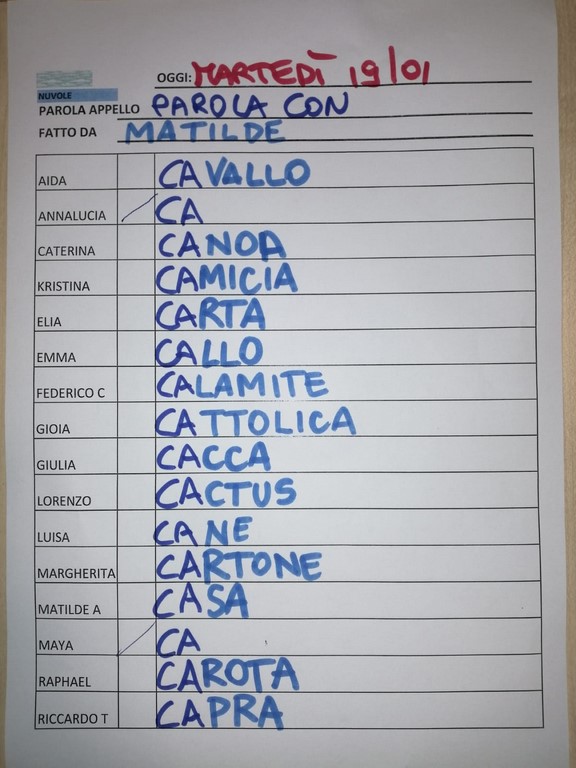 OGGI: MARTEDÌ 19/01
NUVOLE
PAROLA APPELLO PAROLA CON
FATTO DA MATILDE
AIDA CAVALLO
ANNALUCIA CA
CATERINA CANOA
KRISTINA CAMICIA
ELIA CARTA
EMMA CALLO
FEDERICO C CALAMITE
GIOIA CATTOLICA
GIULIA CACCA
LORENZO CACTUS
LUISA CANE
MARGHERITA CARTONE
MATILDE A CASA
MAYA CA
RAPHAEL CAROTA
RICCARDO T CAPRA